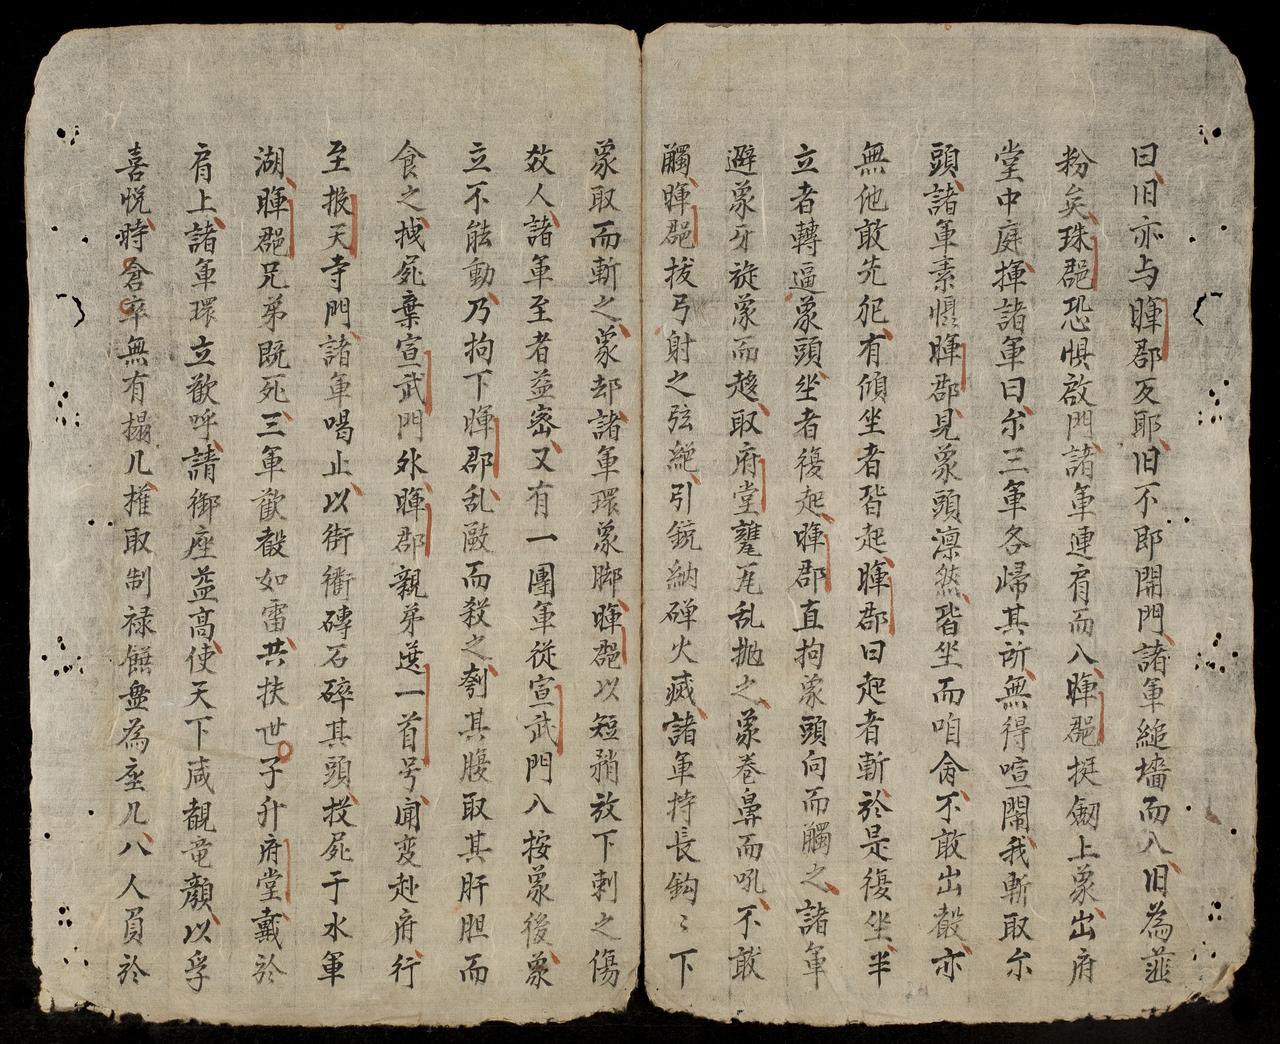 曰旧亦与暉郡反耶旧不即開門諸軍縋墻而入旧為虀
粉矣珠郡恐惧啟門諸軍連肩而入暉郡挺劔上象出府
堂中庭揮諸軍曰尒三軍各歸其所無得喧鬧我斬取尒
頭諸軍素惧暉郡見象頭凛然皆坐而咱侖不敢出聲亦
無他敢先犯有傾坐者皆起暉郡曰起者斬於是復坐半
立者轉逼象頭坐者復起暉郡直拘象頭向而觸之諸軍
避象牙旋象而趍取府堂甓瓦乱抛之象巻鼻而吼不敢
觸暉郡拔弓射之弦絕引銃納磾火滅諸軍持長鈎〻下
象取而斬之象却諸軍環象脚暉郡以短矟放下刺之傷
数人諸軍至者益密又有一團軍從宣武門入按象後象
立不能動乃拘下暉郡乱敺而殺之刳其腹取其肝胆而
食之拽屍棄宣武門外暉郡親弟逆一首号闻变赴府行
至报天寺門諸軍喝止以街衢磚石碎其頭投屍于水軍
湖暉郡兄弟既死三軍歡聲如雷共扶世子升府堂戴於
肩上諸軍環立歡呼請御座益高使天下咸覩竜顔以孚
喜悦時倉卒無有榻几权取制禄饌盘為座几八人員於